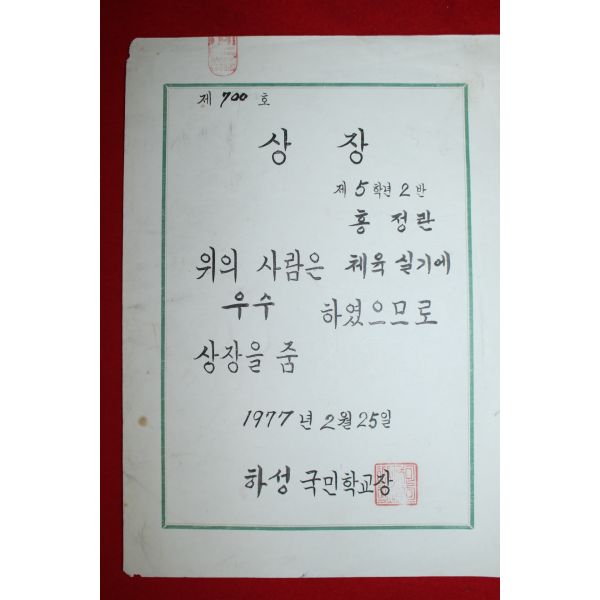 제 700 호
상 장
제 5 학년 2 반
홍 정란
위의 사람은 체육 실기에
우수 하였으므로
상장을 줌
1977 년 2 월 25 일
하성 국민학교장